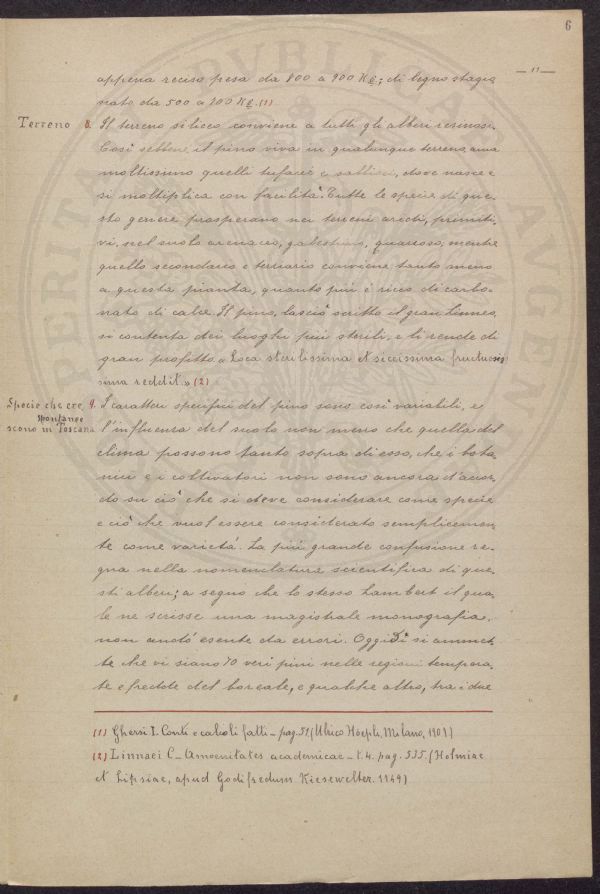 6
— 11 —
appena reciso pesa da 800 a 900 Kg; di legno stagio
nato da 500 a 700 Kg. (1)
Terreno 8. Il terreno siliceo conviene a tutti gli alberi resinosi.
Così sebbene il pino viva in qualunque terreno, ama
moltissimo quelli tufacei e sabbiosi, dove nasce e
si moltiplica con facilità. Tutte le specie di que-
sto genere prosperano nei terreni aridi, primiti-
vi, nel suolo arenaceo, galestrino, quarzoso, mentre
quello secondario e terziario conviene tanto meno
a questa pianta, quanto più è ricco di carbo-
nato di calce. Il pino, lasciò scritto il gran Linneo,
si contenta dei luoghi più sterili, e li rende di
gran profitto. « Loca sterilissima et siccissima fructuosis
sima reddit. » (2)
Specie che cre
spontanee
scono in Toscana
9. I caratteri specifici del pino sono così variabili, e
l'influenza del suolo non meno che quella del
clima possono tanto sopra di esso, che i bota
nici e i coltivatori non sono ancora d'accor
do su ciò che si deve considerare come specie
e ciò che vuol essere considerato semplicemen
te come varietà. La più grande confusione re-
gna nella nomenclatura scientifica di que
sti alberi; a segno che lo stesso Lambert il qua
le ne scrisse una magistrale monografia,
non andò esente da errori. Oggidì si ammet
te che vi siano 70 veri pini nelle regioni tempera
te e fredde del boreale, e qualche altro, tra i due
(1) Ghersi I. Conti e calcoli fatti – pag. 51 (Ulrico Hoepli, Milano, 1901)
(2) Linnaei C – Amoenitates academicae – t. 4. pag. 535. (Holmiae
et Lipsiae, apud Godifredum Kiesewelter. 1749)
PERITA PVBLICA AVGEN